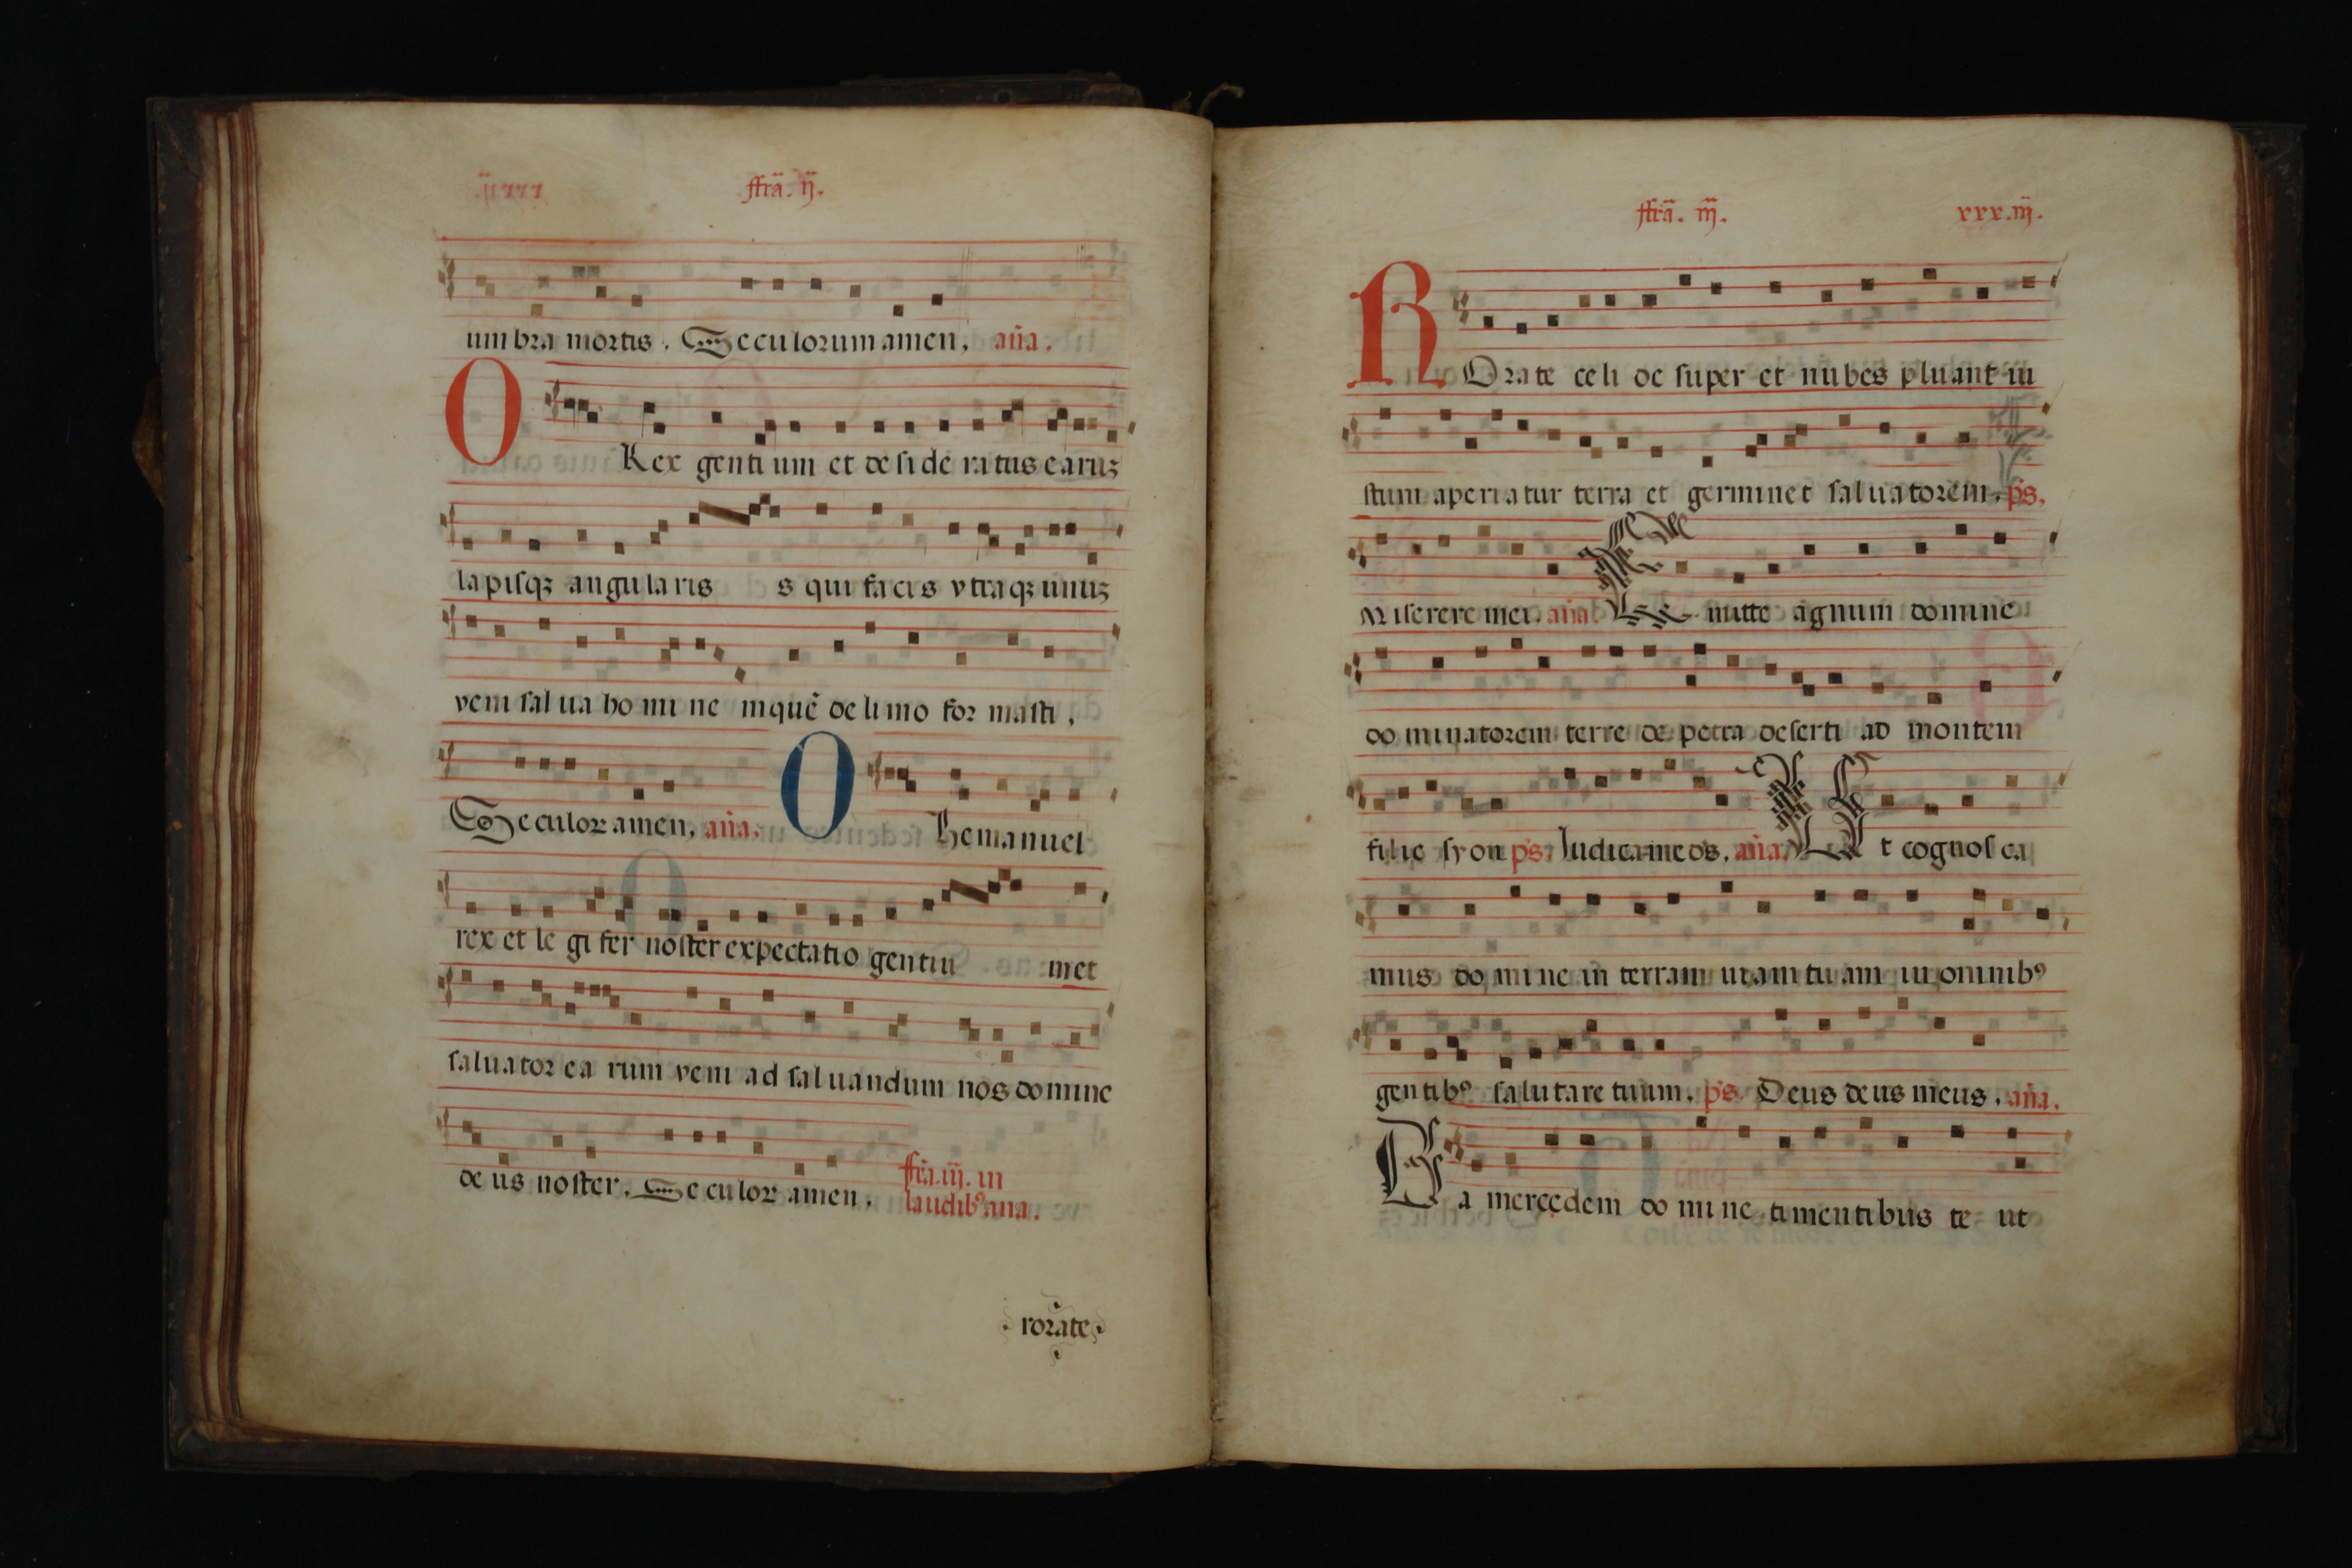 ffrã. ij.
umbra mortis. Seculorum amen, aña.
O Rex gentium et desideratus earuꝫ
lapisqꝫ angularis s qui facis vtraqꝫ unuꝫ
veni salua homine mquẽ de limo formasti,
Seculoꝝ amen, aña. O hemanuel
rex et legifer noster expectatio gentiu met
saluator earum veni ad saluandum nos domine
deus noster. Seculoꝝ amen.
ffrã. iij. in
laudibꝰ aña.
rorate
ffrã. iij.
xxx.iij.
ROrate celi de super et nubes pluant iu
stum aperiatur terra et germinet saluatorem, ps,
Miserere mei. aña. Emitte agnum domine
dominatorem terre de petra deserti ad montem
filie syon ps, Iudica me ds, aña, Ut cognosca
mus domine in terram uiam tuam in omnibꝰ
gentibꝰ salutare tuum. ps Deus deus meus, aña.
Da mercedem domine timentibus te ut